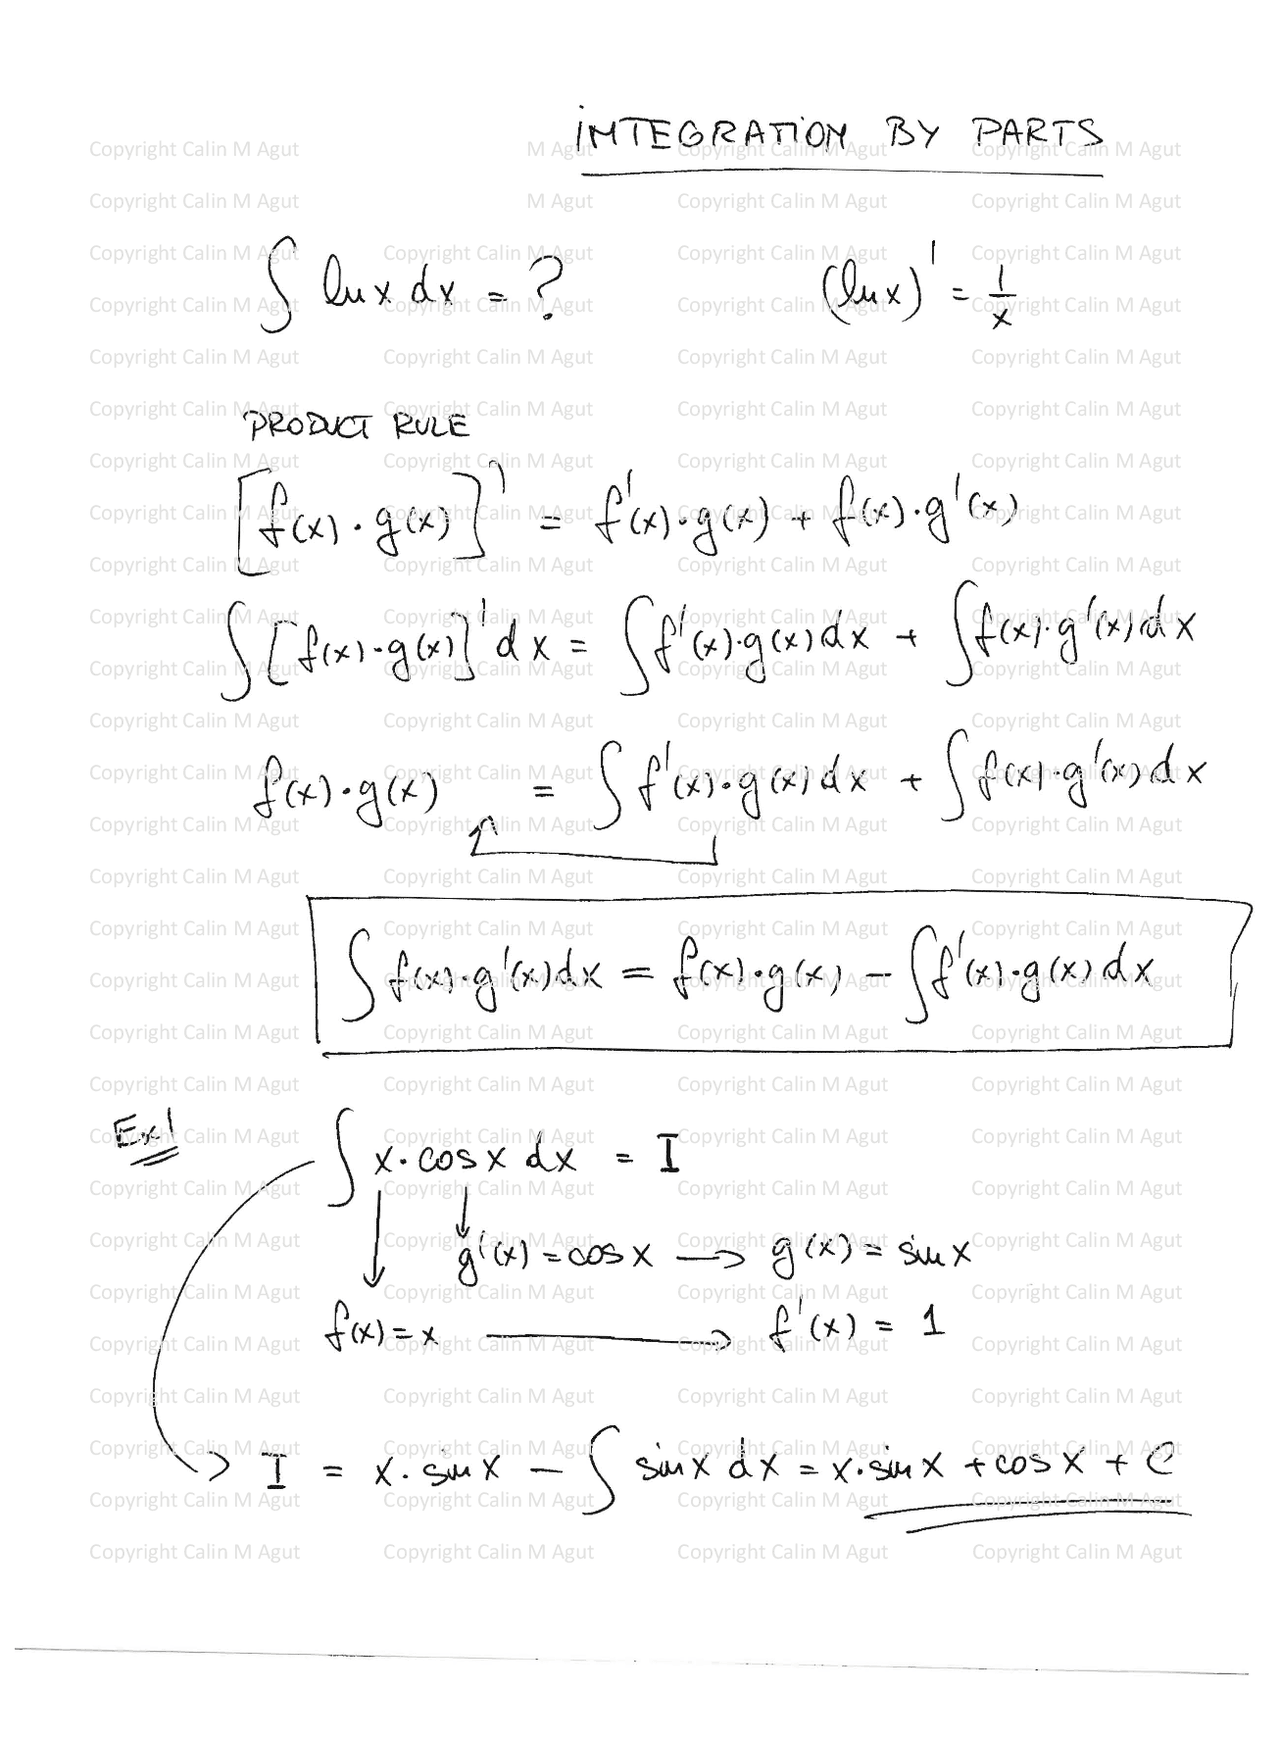 INTEGRATION BY PARTS
∫ ln x dx = ? (ln x)' = 1/x
PRODUCT RULE
[f(x)·g(x)]' = f'(x)·g(x) + f(x)·g'(x)
∫[f(x)·g(x)]' dx = ∫f'(x)·g(x)dx + ∫f(x)·g'(x)dx
f(x)·g(x) = ∫f'(x)·g(x)dx + ∫f(x)·g'(x)dx
∫f(x)·g'(x)dx = f(x)·g(x) − ∫f'(x)·g(x)dx
Ex1
∫ x·cos x dx = I
g'(x) = cos x → g(x) = sin x
f(x) = x → f'(x) = 1
I = x·sin x − ∫ sin x dx = x·sin x + cos x + C
Copyright Calin M Agut